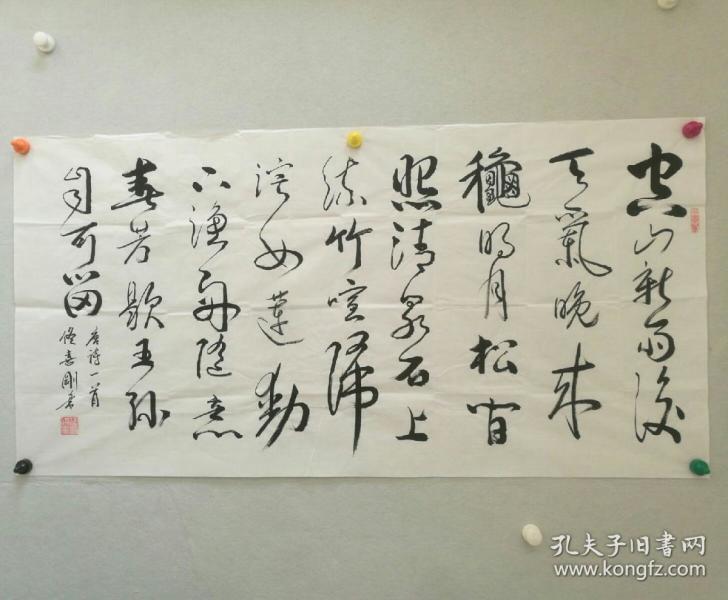 空山新雨後
天氣晚来
龝明月松间
照清泉石上
流竹喧歸
浣女蓮動
下渔舟随意
春芳歇王孫
自可留
唐诗一首
喜刚书
孔夫子旧书网
www.kongfz.com